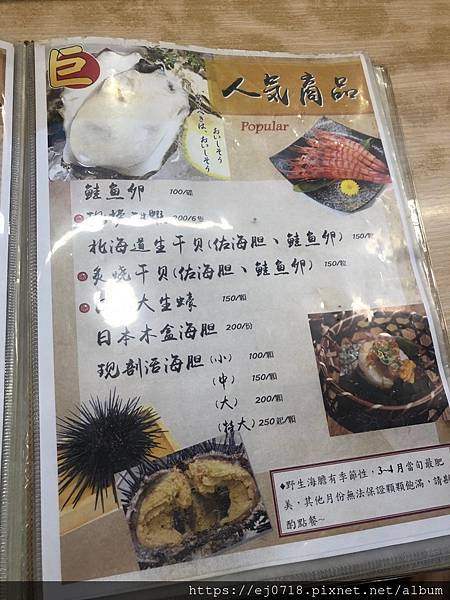 巨
人气商品
Popular
おいしそう
きは、おいしそう
鲑鱼卵 100/碟
200/6隻
北海道生干贝(佐海胆、鲑鱼卵) 150/粒
炙烧干贝(佐海胆、鲑鱼卵) 150/粒
大生蠔 150/顆
日本木盒海胆 200/份
现剖活海胆(小) 100/顆
(中) 150/顆
(大) 200/顆
(特大) 250起/顆
♦野生海膽有季節性，3~4月當旬最肥
美，其他月份無法保證顆顆飽滿，請斟
酌點餐~
https://ej0718.pixnet.net/album